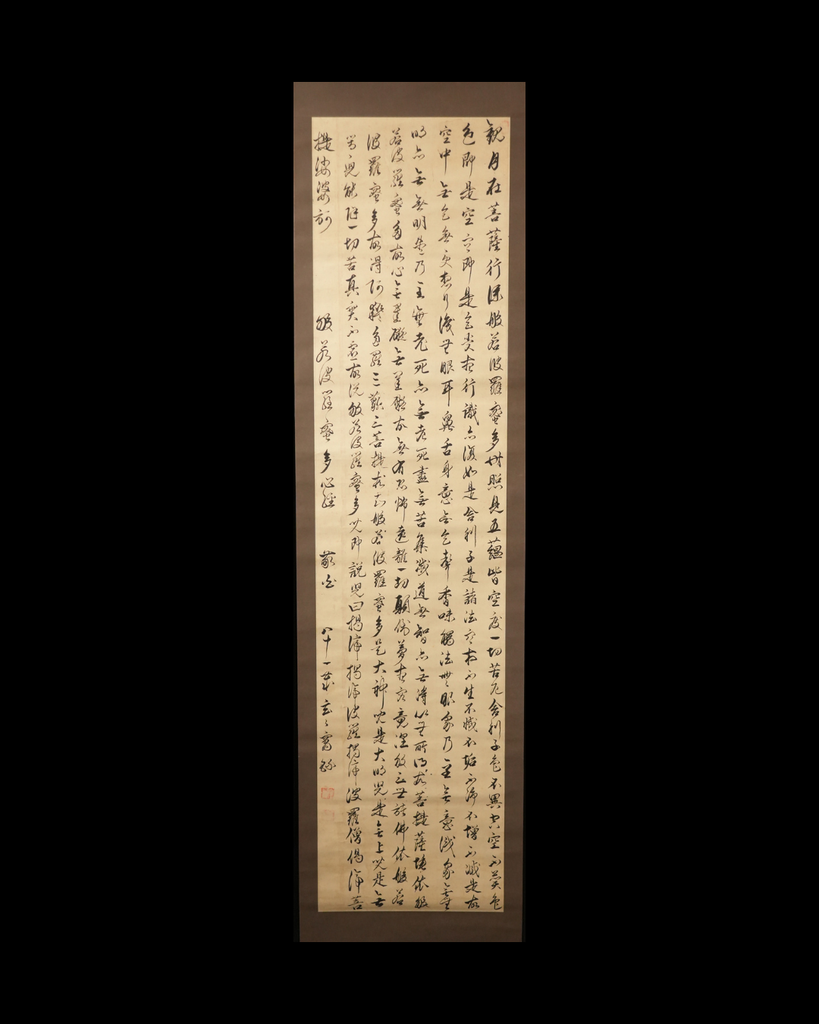 觀自在菩薩行深般若波羅蜜多時照見五蘊皆空度一切苦厄舍利子色不異空空不異色
色即是空空即是色受想行識亦復如是舍利子是諸法空相不生不滅不垢不淨不增不減是故
空中無色無受想行識無眼耳鼻舌身意無色聲香味觸法無眼界乃至無意識界無無
明亦無無明盡乃至無老死亦無老死盡無苦集滅道無智亦無得以無所得故菩提薩埵依般
若波羅蜜多故心無罣礙無罣礙故無有恐怖遠離一切顛倒夢想究竟涅槃三世諸佛依般若
波羅蜜多故得阿耨多羅三藐三菩提故知般若波羅蜜多是大神咒是大明咒是無上咒是無
等等咒能除一切苦真實不虛故說般若波羅蜜多咒即說咒曰揭諦揭諦波羅揭諦波羅僧揭諦菩
提薩婆訶 般若波羅蜜多心經 敬書 八十一歲